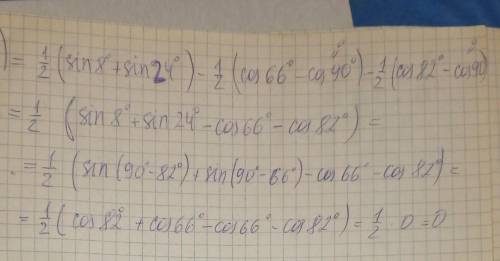 ) = 1/2 (sin 8° + sin 24°) - 1/2 (cos 66° - cos 90°) - 1/2 (cos 82° - cos 90)
0 0
= 1/2 (sin 8° + sin 24° - cos 66° - cos 82°) =
= 1/2 (sin (90° - 82°) + sin (90° - 66°) - cos 66° - cos 82°) =
= 1/2 (cos 82° + cos 66° - cos 66° - cos 82°) = 1/2 · 0 = 0